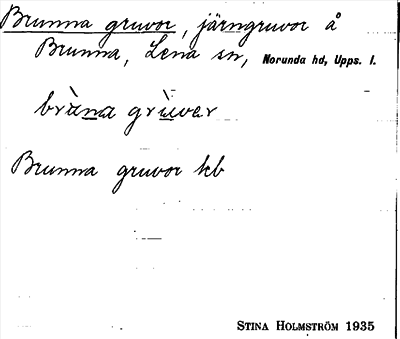 Brunna gruvor, järngruvor å
Brunna, Lena sn, Norunda hd, Upps. l.
brùna grùver
Brunna gruvor kb
STINA HOLMSTRÖM 1935